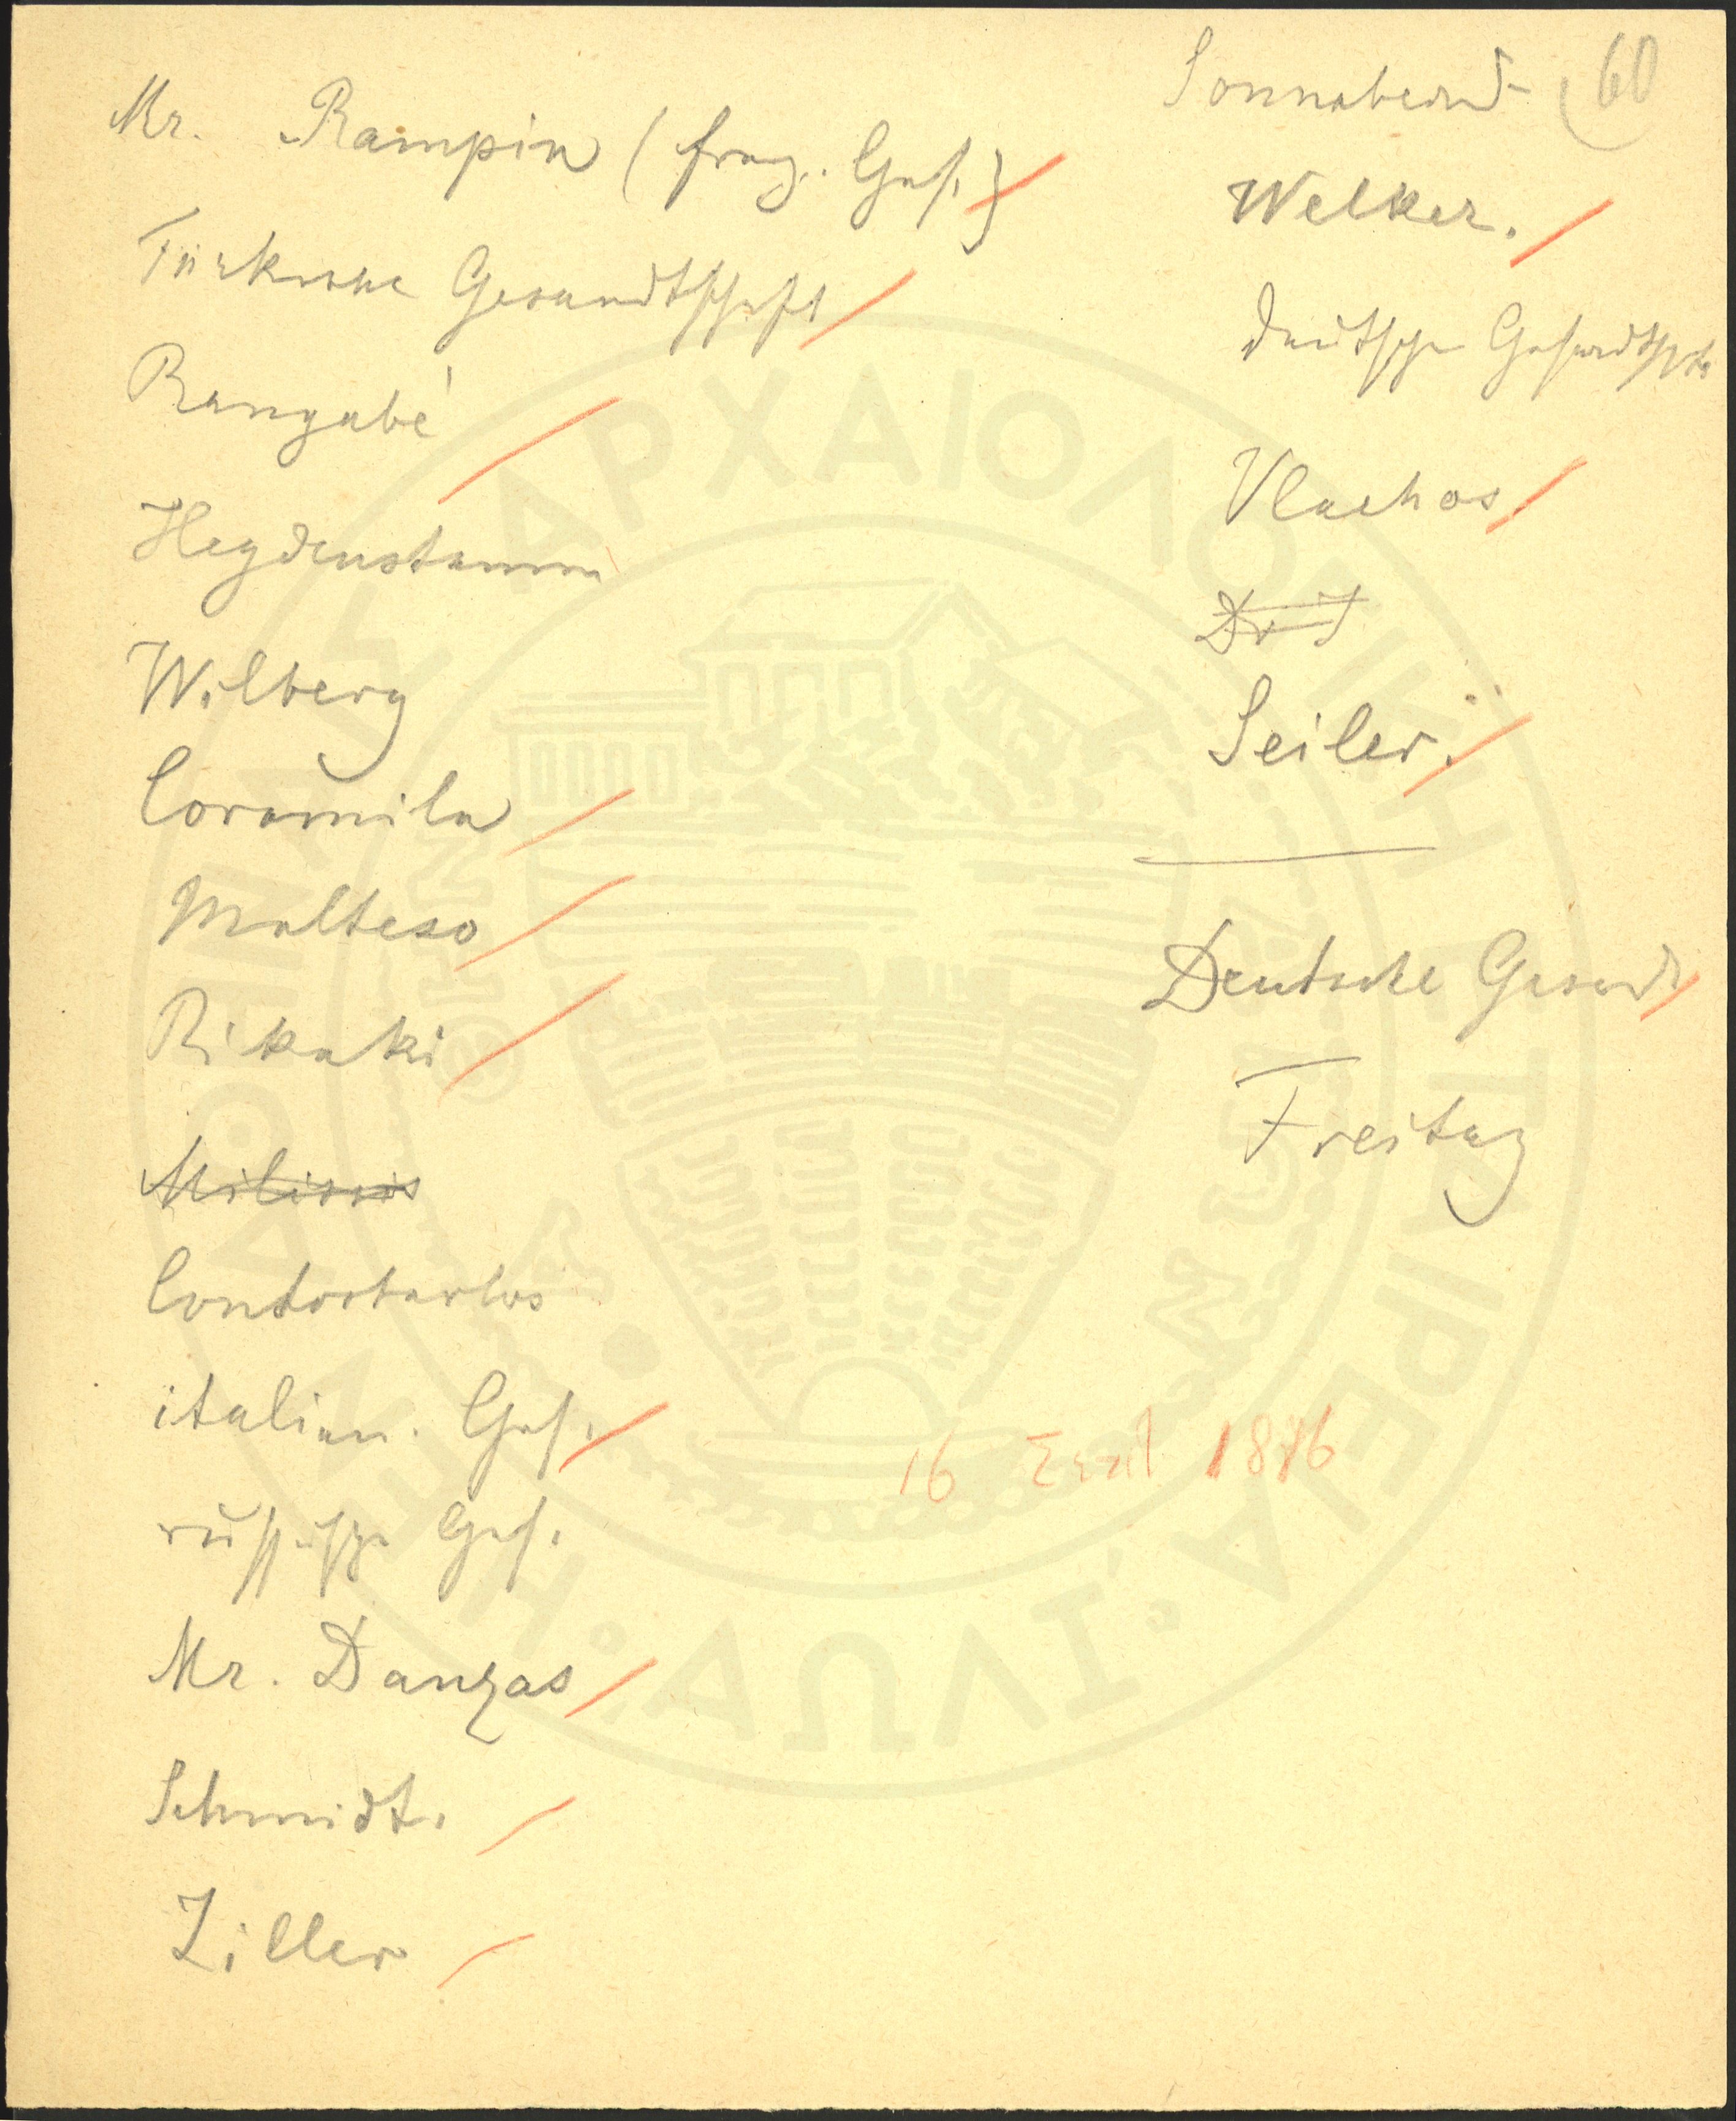 60
Mr. Rampin (franz. Ges.)
Türkische Gesandtschaft
Rangabé
Heydenstamm
Wilberg
Coromila
Malteso
Rikaki
Contostavlos
italien. Ges.
russische Ges.
Mr. Danzas
Schmidt.
Ziller
Sonnabend
Welker.
deutsche Gesandtsch.
Vlachos
Dr S
Seiler.
Deutsche Gesand
Freitag
16 Σεπτ 1886
ΑΡΧΑΙΟΛΟΓΙΚΗ ΕΤΑΙΡΕΙΑ